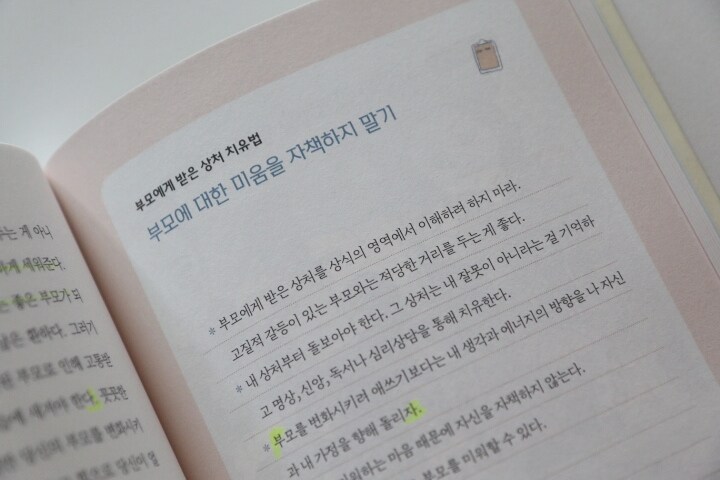 는 게 아니
하게 세워준다.
는 좋은 부모가 되
그러기
부모로 인해 고통받
새겨야 한다. 꿋꿋한
당신의 부모를 변화시키
당신이 잘
부모에게 받은 상처 치유법
부모에 대한 미움을 자책하지 말기
* 부모에게 받은 상처를 상식의 영역에서 이해하려 하지 마라.
고질적 갈등이 있는 부모와는 적당한 거리를 두는 게 좋다.
* 내 상처부터 돌보아야 한다. 그 상처는 내 잘못이 아니라는 걸 기억하
고 명상, 신앙, 독서나 심리상담을 통해 치유한다.
* 부모를 변화시키려 애쓰기보다는 내 생각과 에너지의 방향을 나 자신
과 내 가정을 향해 돌리자.
미워하는 마음 때문에 자신을 자책하지 않는다.
부모를 미워할 수 있다.